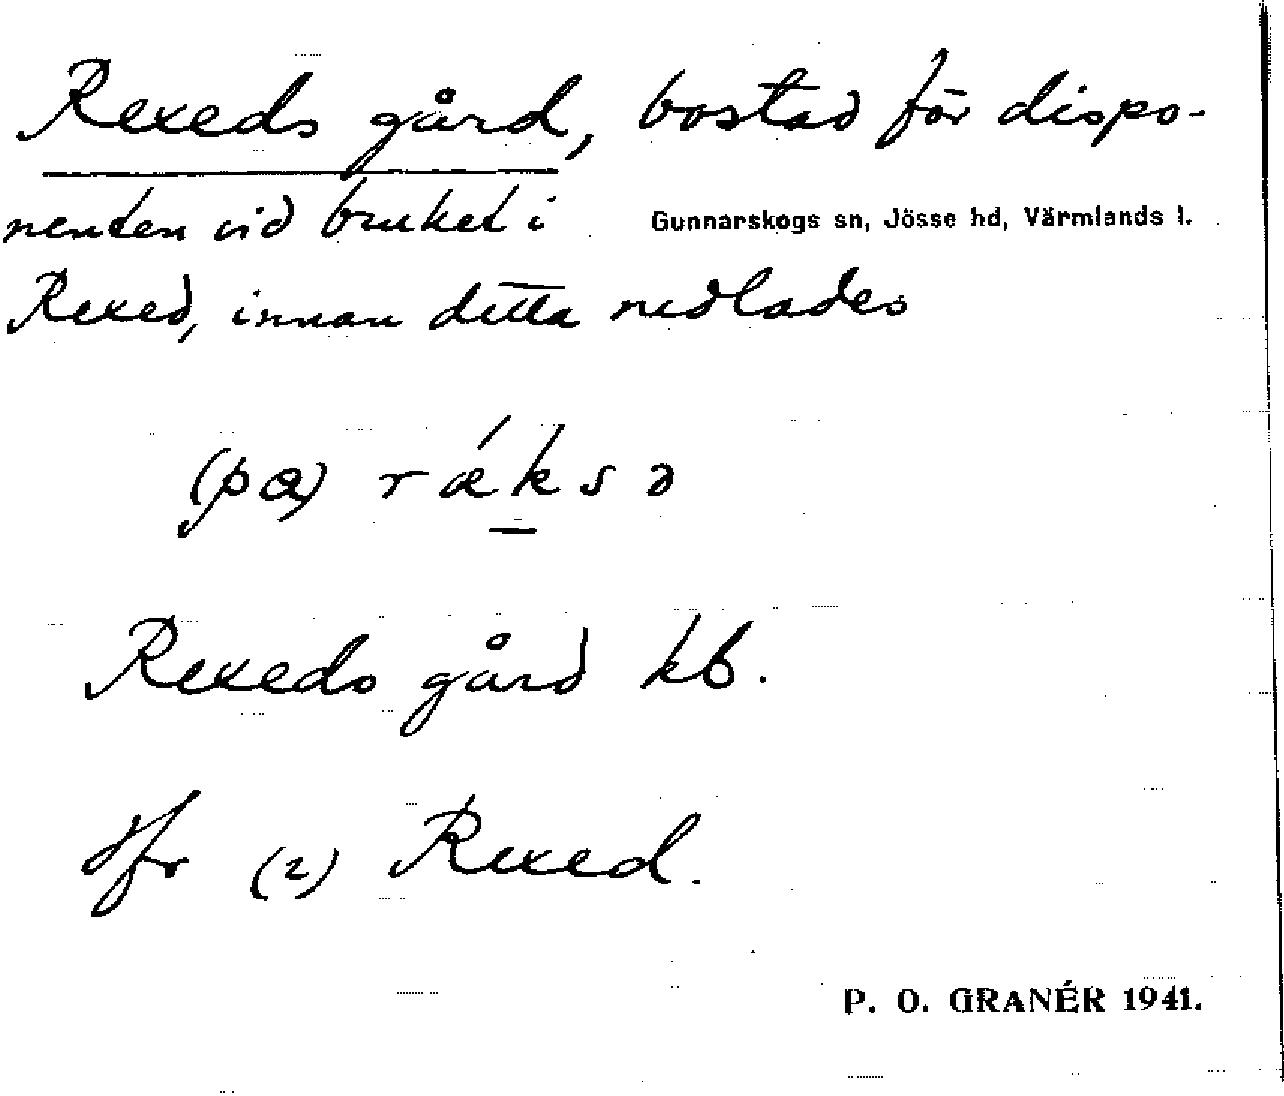 Rexeds gård, bostad för dispo-
nenten vid bruket i
Gunnarskogs sn, Jösse hd, Värmlands l.
Rexed, innan detta nedlades
(pa) rǽksə
Rexeds gård kb.
Jfr (2) Rexed.
P. O. GRANÉR 1941.